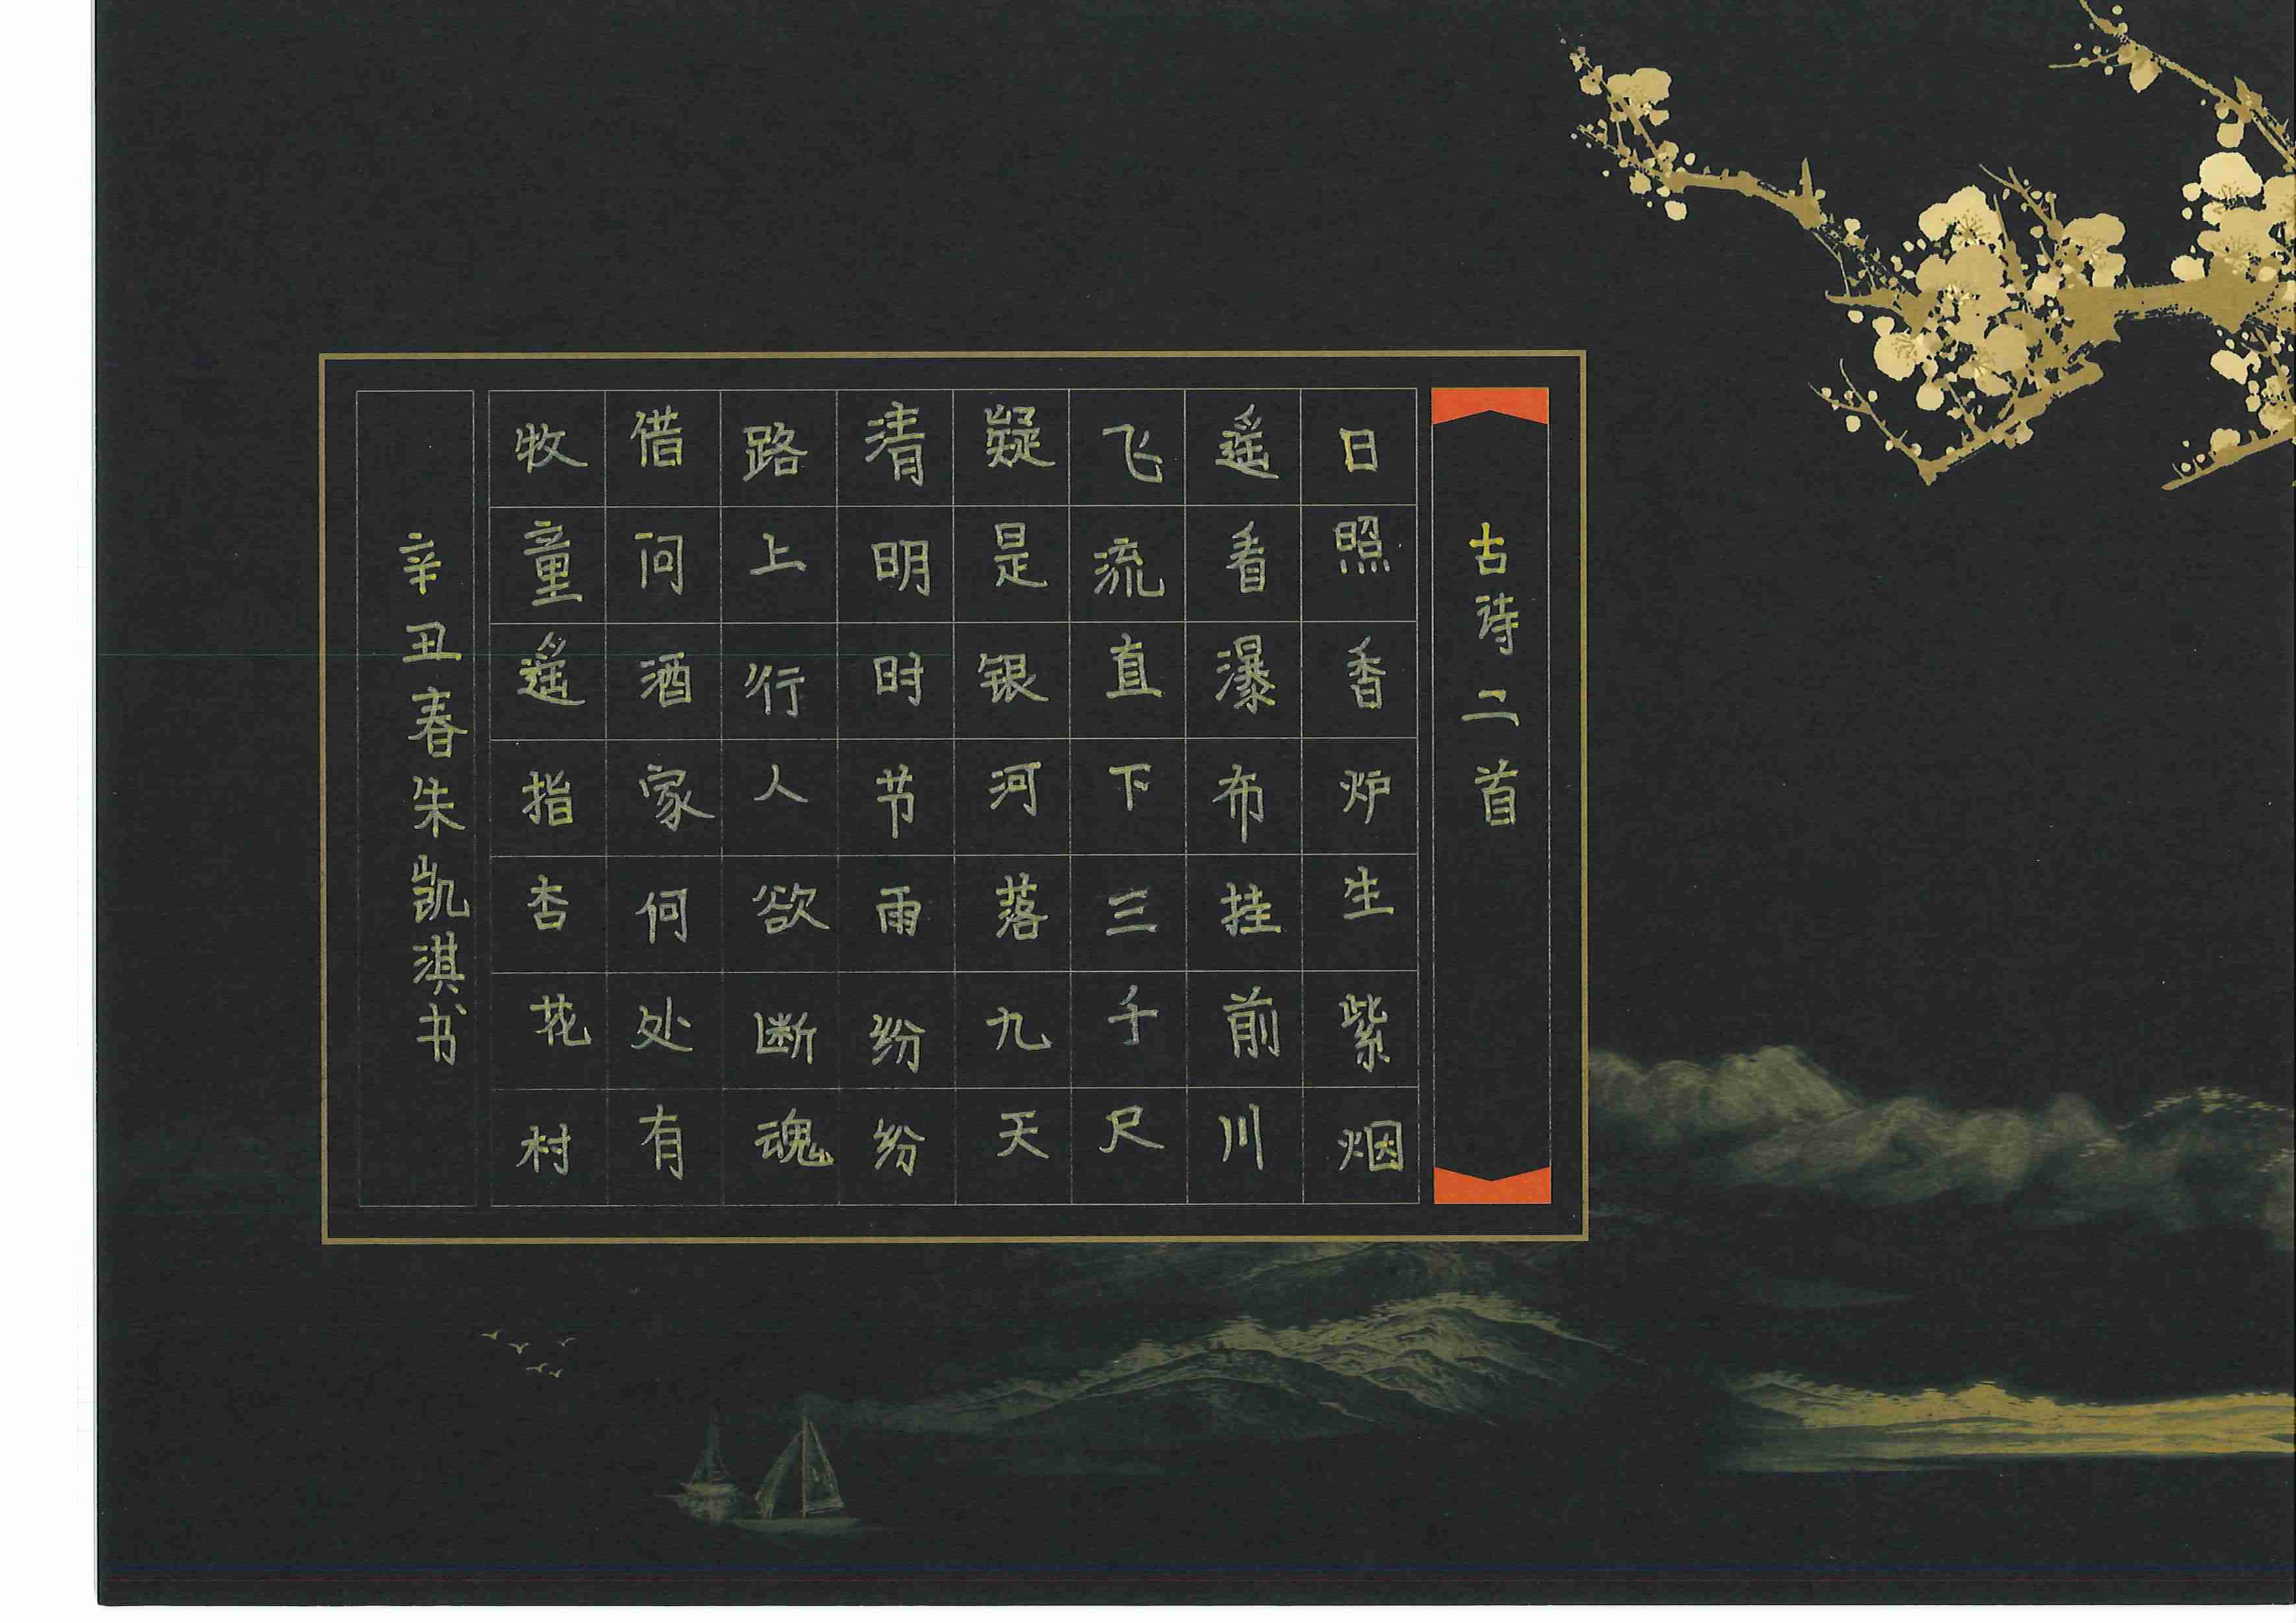 古诗二首
日照香炉生紫烟
遥看瀑布挂前川
飞流直下三千尺
疑是银河落九天
清明时节雨纷纷
路上行人欲断魂
借问酒家何处有
牧童遥指杏花村
辛丑春朱凯淇书